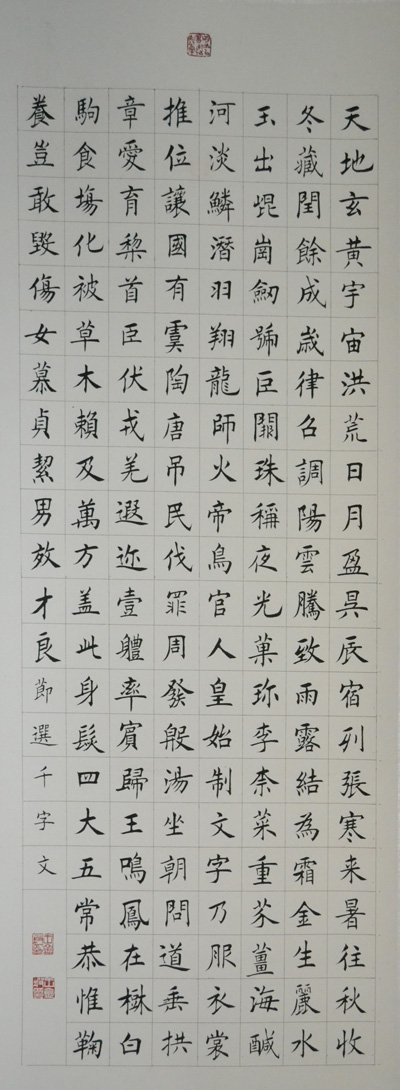 天地玄黃宇宙洪荒日月盈昃辰宿列張寒来暑往秋收
冬藏閏餘成歲律召調陽雲騰致雨露結為霜金生麗水
玉出崐崗劒號巨闕珠稱夜光菓珎李柰菜重芥薑海醎
河淡鱗潛羽翔龍師火帝鳥官人皇始制文字乃服衣裳
推位讓國有虞陶唐吊民伐罪周發殷湯坐朝問道垂拱
章愛育黎首臣伏戎羌遐迩壹軆率賓歸王鳴鳳在樹白
駒食場化被草木賴及萬方盖此身髮四大五常恭惟鞠
養豈敢毀傷女慕貞絜男效才良節選千字文